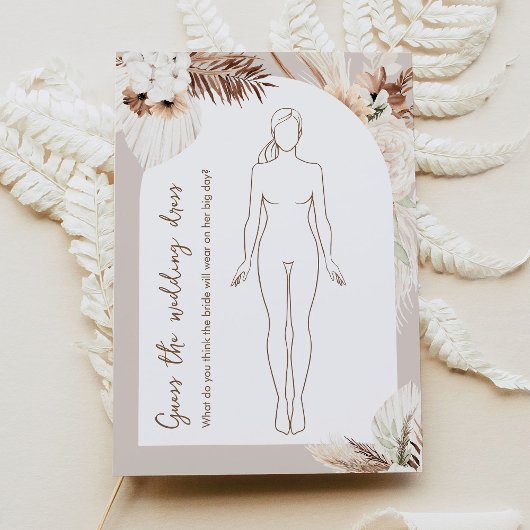 Guess the wedding dress
What do you think the bride will wear on her big day?